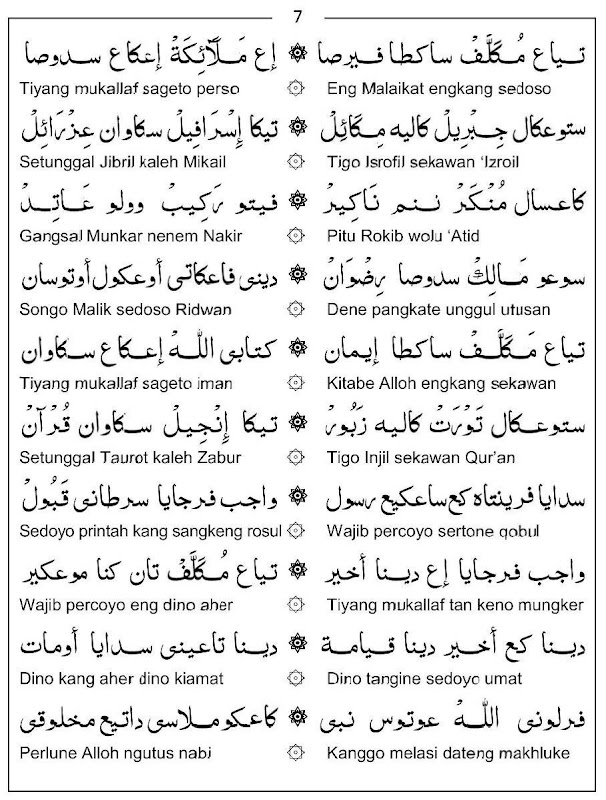 7
تـياع مُـكَلَّفْ ساكطا فيرصا ۞ إع مَـلَآئِكَةْ إعكاع سدوصا
Tiyang mukallaf sageto perso ۞ Eng Malaikat engkang sedoso
ستوعكال جِـبْرِيلْ كاليه مِـكَائِلْ ۞ تيكا إِسْرَافِيلْ سكاوان عِزْرَائِلْ
Setunggal Jibril kaleh Mikail ۞ Tigo Isrofil sekawan ‘Izroil
كاعسال مُنْكَرْ نـنم نَاكِيرْ ۞ فيتو رَكِيبْ وولو عَـاتِـدْ
Gangsal Munkar nenem Nakir ۞ Pitu Rokib wolu ‘Atid
سوعو مَـالِكْ سدوصا رِضْوَانْ ۞ دينى فاعكاتى أوعكول أوتوسان
Songo Malik sedoso Ridwan ۞ Dene pangkate unggul utusan
تياع مَكَلَّفْ ساكطا إيمان ۞ كتابى اللّٰه إعكاع سكاوان
Tiyang mukallaf sageto iman ۞ Kitabe Alloh engkang sekawan
ستوعكال تَوْرَتْ كاليه زَبُورْ ۞ تيكا إِنْجِيلْ سكاوان قُرْآنْ
Setunggal Taurot kaleh Zabur ۞ Tigo Injil sekawan Qur’an
سدايا فرينتاه كع ساعكيع رسول ۞ واجب فرجايا سرطانى قَبُولْ
Sedoyo printah kang sangkeng rosul ۞ Wajib percoyo sertone qobul
واجب فرجايا إع دينا أخير ۞ تياع مُكَلَّفْ تان كنا موعكير
Wajib percoyo eng dino aher ۞ Tiyang mukallaf tan keno mungker
دينا كع أخير دينا قيامة ۞ دينا تاعينى سدايا أومات
Dino kang aher dino kiamat ۞ Dino tangine sedoyo umat
فرلونى اللّٰه عوتوس نبى ۞ كاعكو ملاسى داتيع مخلوقى
Perlune Alloh ngutus nabi ۞ Kanggo melasi dateng makhluke